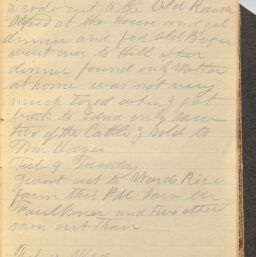 I rode out to the Old Ranch
Stoped at the House and got
dinner and fed Old Roger
went over to Hill after
dinner found only Walter
at home was not very
much Tired when I got
back to Edna only saw
two of the Cattle I sold to
Tom
Feb 9 Tuesday
I went out to Wards Rice
farm this PM saw Mr
Faulkner and two other
men out thair